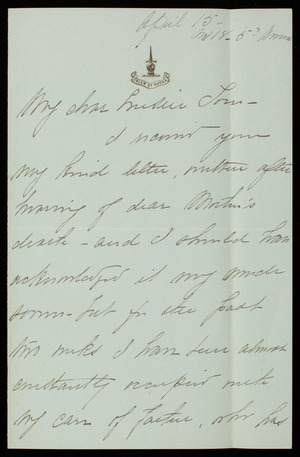 April 15-
No 18- 5th
My dear Cousin Tom-
I received your
very kind letter, written after
hearing of dear Mother's
death - and I should have
acknowledged it very much
sooner - but for the past
two weeks I have been almost
constantly occupied with
my care of father, who has